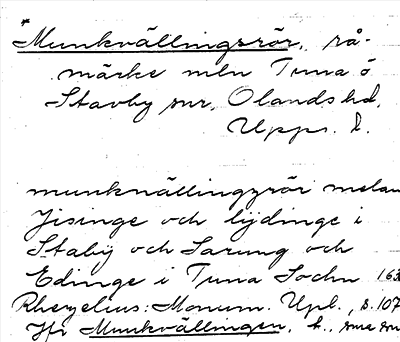 *Munkvällingsrör, rå-
märke mln Tuna o
Stavby snr, Olandshd,
Upps. l.
munkvällingzrör melan
Jisinge och lijdinge i
Stabÿ och Sarung och
Edinge i Tuna Sochn 163
Rhezelius: Monum. Upl., s. 107
Jfr Munkvällingen, h., sme sn